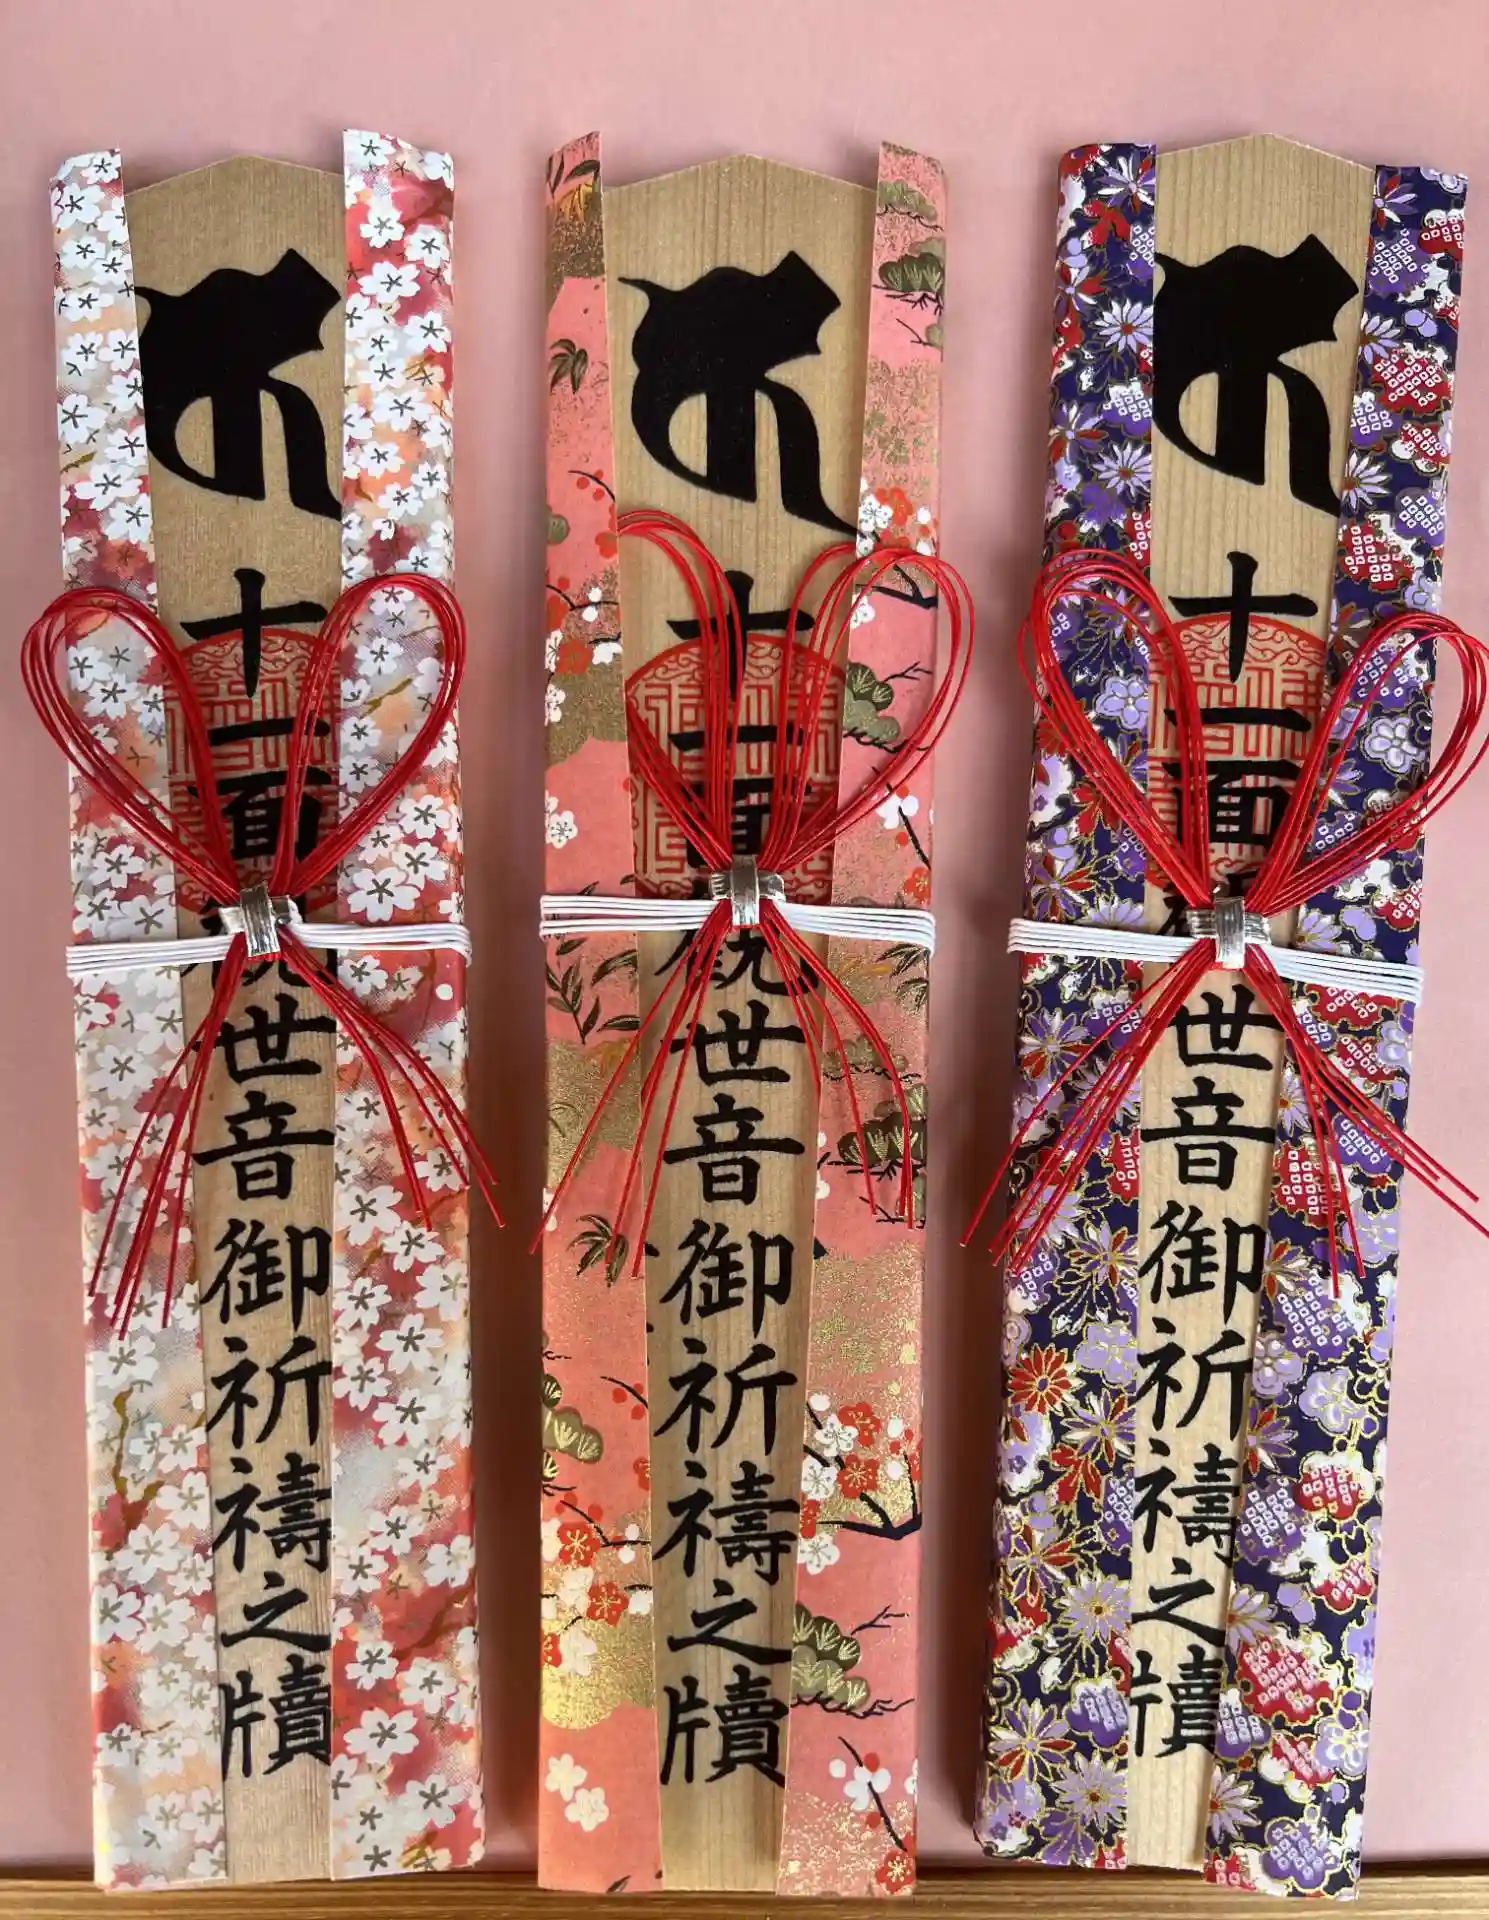 十一面観世音御祈禱之牘
十一面観世音御祈禱之牘
十一面観世音御祈禱之牘